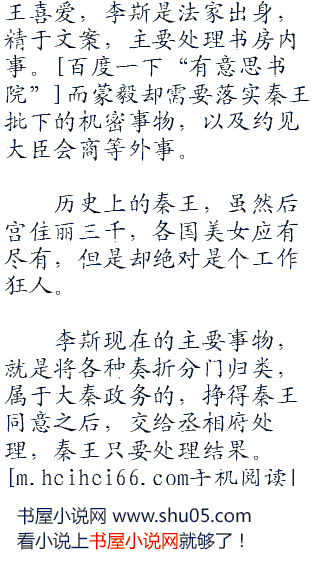 王喜爱，李斯是法家出身，
精于文案，主要处理书房内
事。[百度一下“有意思书
院”]而蒙毅却需要落实秦王
批下的机密事物，以及约见
大臣会商等外事。
历史上的秦王，虽然后
宫佳丽三千，各国美女应有
尽有，但是却绝对是个工作
狂人。
李斯现在的主要事物，
就是将各种奏折分门归类，
属于大秦政务的，挣得秦王
同意之后，交给丞相府处
理，秦王只要处理结果。
[m.hcihci66.com手机阅读|
书屋小说网 www.shu05.com
看小说上书屋小说网就够了！